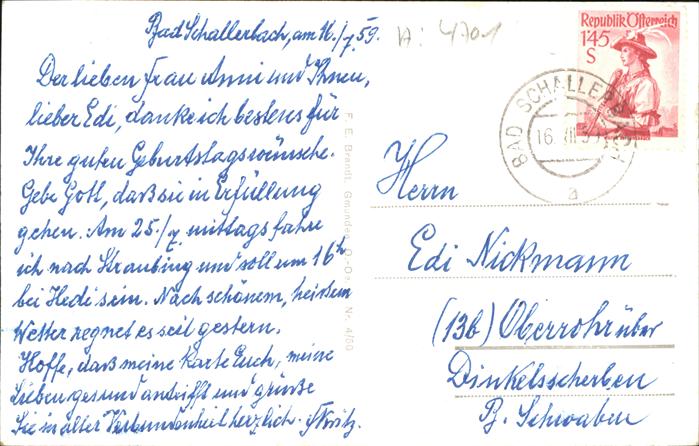 Bad Schallerbach, am 16./7.59.
Der lieben Frau Anni und Ihnen,
lieber Edi, danke ich bestens für
Ihre guten Geburtstagswünsche.
Gebe Gott, daß sie in Erfüllung
gehen. Am 25./7. mittags fahre
ich nach Straubing und soll um 16h
bei Hedi sein. Nach schönem, heißem
Wetter regnet es seit gestern.
Hoffe, daß meine Karte Euch, meine
Lieben gesund antrifft und grüße
Sie in alter Verbundenheit herzlich.
F. E. Brandt, Gmunden, O.-Ö. Nr. 4/50
A: 4701
Republik Österreich
1'45
S
BAD SCHALLERB
16. VII. 59
a
Herrn
Edi Nickmann
(13b) Oberrohr über
Dinkelsscherben
B. Schwaben